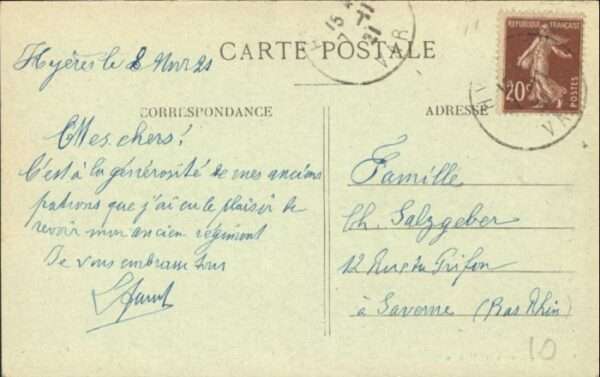 CARTE POSTALE
Hyères le 8 Nov 21
CORRESPONDANCE
Mes chers!
C'est à la générosité de mes anciens
patrons que j'ai eu le plaisir de
revoir mon ancien régiment
Je vous embrasse tous
ADRESSE
Famille
Ch. Salzgeber
12 Rue du Grifon
à Saverne (Bas Rhin)
10
REPUBLIQUE FRANÇAISE
20c
POSTES
15
7 - 11
21
VAR
VAR